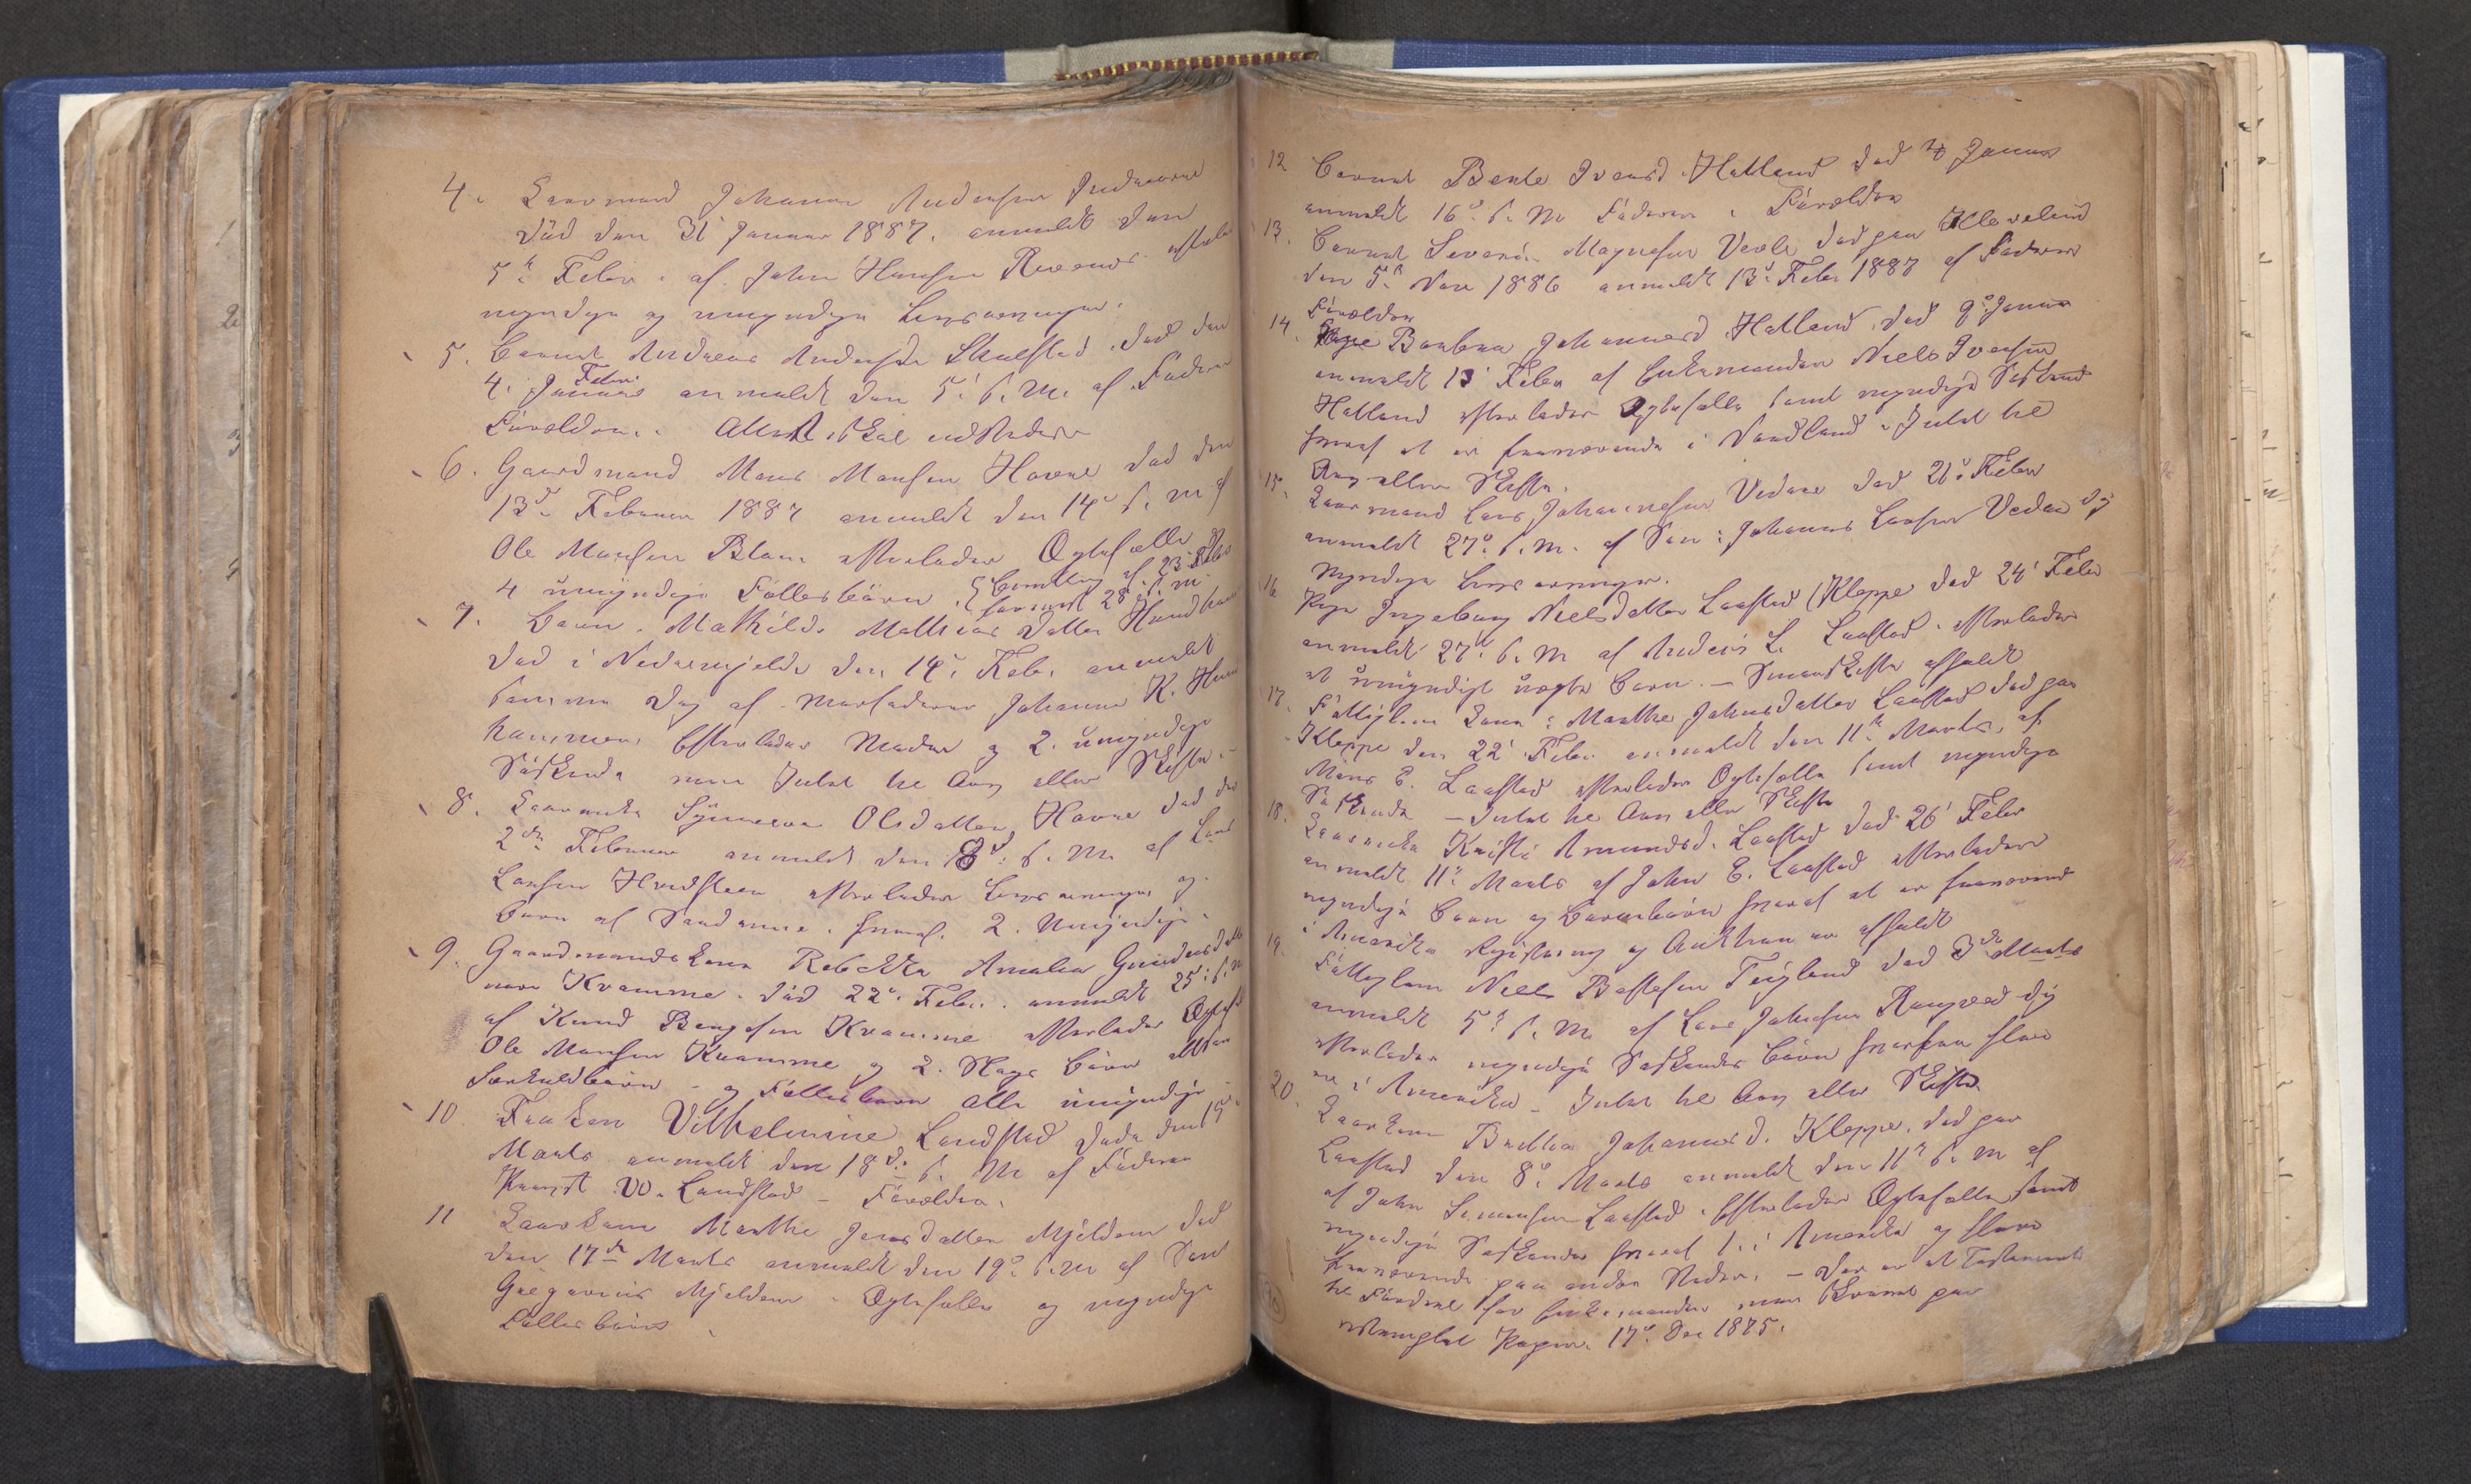 4. Gaarmand Johannes Andersen
Död den 31 Januar 1887. anmeldt den
5te Febr. af John Hansen
myndige og umyndige Livsarvinger.
5. Barnet Andreas Andersen Skulstad. död den
Febr.
4. Januar anmeldt den 5. s. M. af Faderen
Forældre. Attest skal udstedes
6. Gaardmand Mons Monsen Havre död den
13de Februar 1887 anmeldt den 14de s. M af
Ole Monsen Blom efterlader Ægtefælle og
4 umyndige Fællesbörn. af 23 Febr
28 s. m.
7. Barn. Mathilde Mathias datter
död i Nedremjelde den 14. Feb. anmeldt
samme Dag af Morfaderen Johannes K.
hammer. Efterlader Moder og 2. umyndige
Söskende men Intet til Arv eller Skifte.
8. Synneva Olsdatter Havre död den
2den Februar anmeldt den 8de s. M. af Lars
Larsen Hvidsteen efterlader Livsarvinger og
Börn af Saadanne. hvoraf. 2. Umyndige.
9. Gaardmandskone Rebekka Amalia
Kvamme. död 22de Febr. anmeldt 25. s. M
af Knud Bengtsen Kvamme efterlader Ægtef
Ole Monsen Kvamme og 2. Slags Börn
Særkuldbörn - og Fællesbörn alle umyndige
10 Fröken Vilhelmine Landstad döde den 15
Marts anmeldt den 18de s. M af Faderen
Præst W. Landstad - Forældre.
11 Gaarkone Marthe Jensdatter Mjeldem död
den 17de Marts anmeldt den 19de s. M af Sön
Gregorius Mjeldem. Ægtefælle og myndige
Fællesbörn.
12 Barnet Bente Iversd. Hatland död Januar
anmeldt 16de s. M Faderen. Forældre
13. Barnet Magnesen Vevle död paa Kleveland
den 5te Nov 1886 anmeldt 13de Febr 1887 af Faderen
Forældre
14. Barbra Johannesd. Hatland. död 9de Januar
anmeldt 13 Febr af Enkemanden Niels Iversen
Hatland efterlader Ægtefælle samt myndige Söskende
hvoraf et er fraværende i Nordland. Intet til
Arv eller Skifte.
15. Gaarmand Lars Johannesen Vedaae död 21de Febr
anmeldt 27de s. M. af Sön: Johannes Larsen Vedaa dy
Myndige Livsarvinger.
16 Pige Ingeborg Nielsdatter Laastad (Kleppe död 24' Febr
anmeldt 27de s. M af Anders L. Laastad. efterlader
et umyndigt uægte Barn. - Skifte afholdt
17. Fattiglem Kone: Marthe Johnsdatter Laastad död paa
Kleppe den 22' Febr. anmeldt den 11te Marts, af
Mons E. Laastad efterlader Ægtefælle samt myndige
Söskende - Intet til Arv eller Skifte
18. Kristi Amundsd. Laastad död 26' Febr
anmeldt 11te Marts af John E. Laastad efterladere
myndige Börn og Barnebörn hvoraf et er fraværende
i Amerika Registrering og Auktion er afholdt
19. Fattiglem Niels Bottolfsen Teigland död 3die Marts
anmeldt 5te s. M. af Lars Johnsen dy
efterlader myndige Söskendes Börn flere
er i Amerika - Intet til Arv eller Skifte.
20. Gaarkone Brithe Johannesd. Kleppe. död paa
Laastad den 8de Marts anmeldt den 11te s. M af
af John Simonsen Laastad. Efterlader Ægtefælle samt
myndige Söskende hvoraf 1. i Amerika og flere
fraværende paa andre Steder. - Der er et Testament
til Fordel for Enkemanden men skrevet paa
ustemplet Papir. 17de Dec 1875.